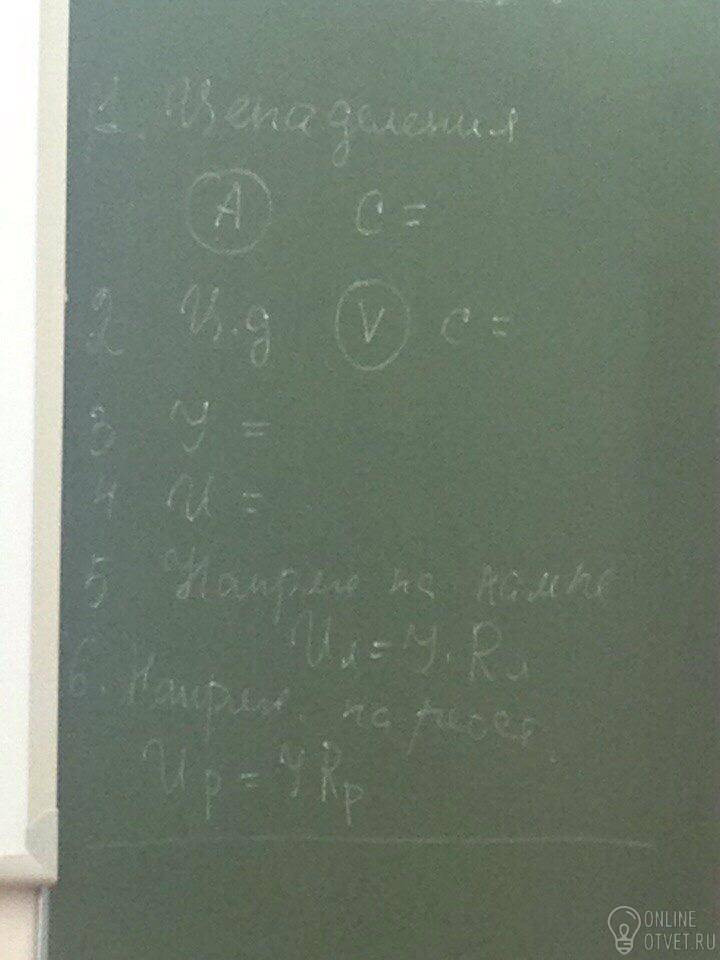 1. Цена деления
A C =
2 Ц.д V C =
3 I =
4 U =
5 Напряж на лампе
Uл = I · Rл
6. Напряж. на реост.
Uр = I Rр
ONLINE
OTVET.RU